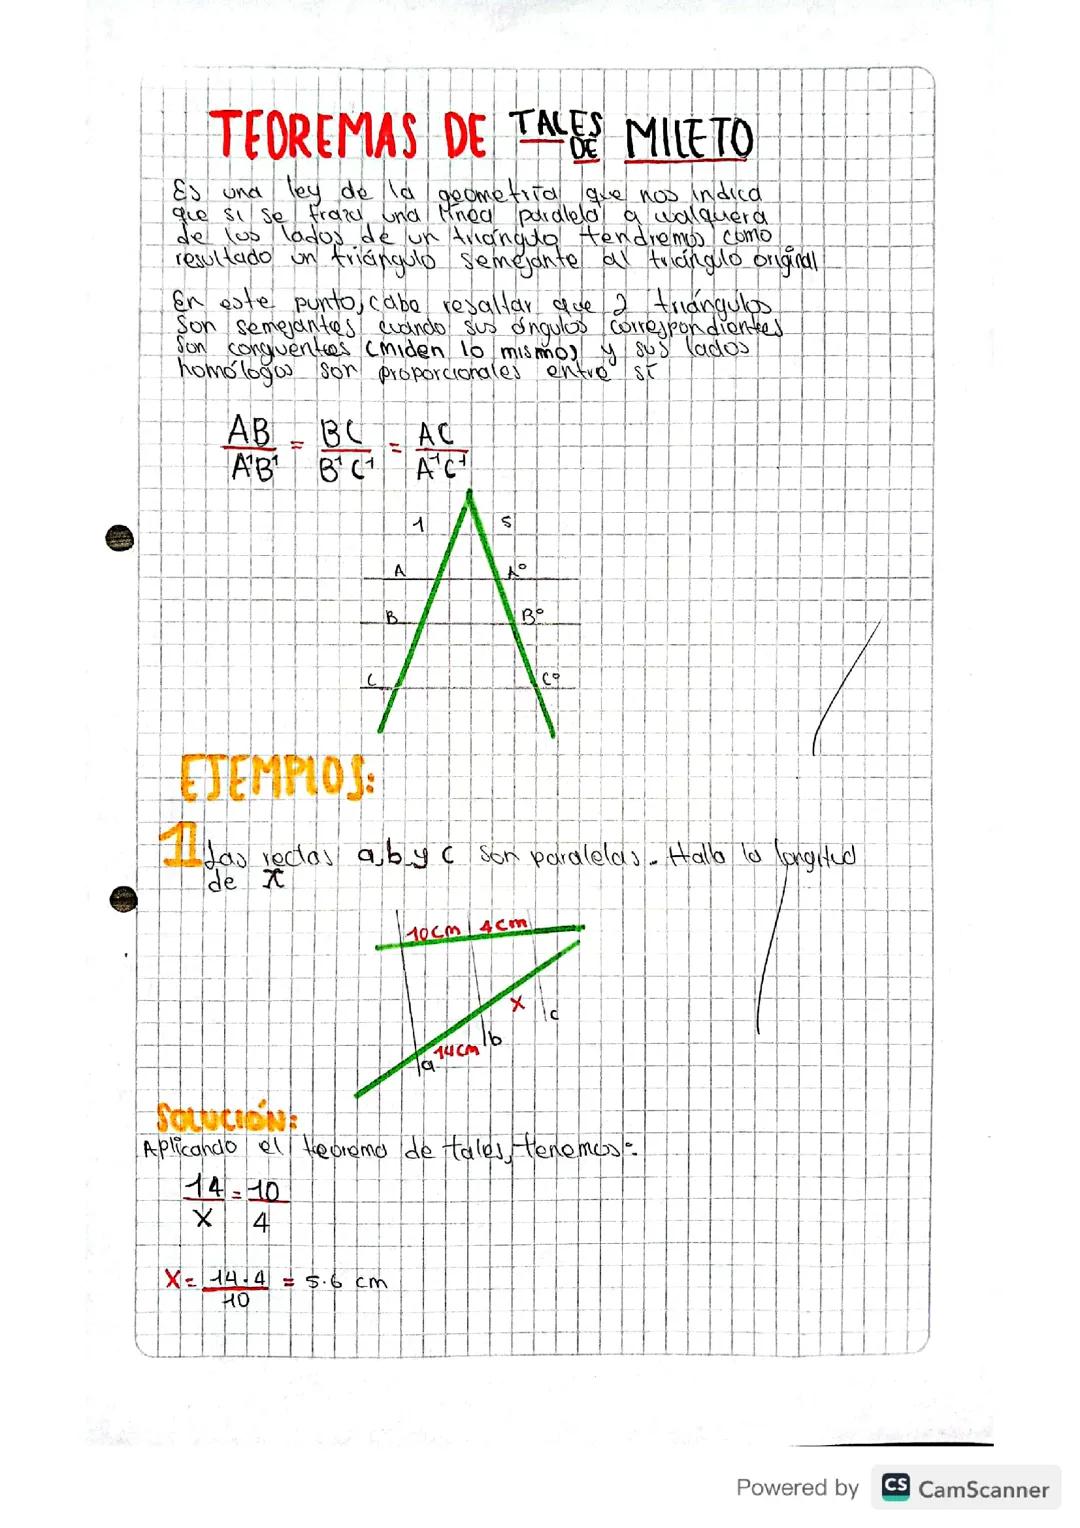 TEOREMAS DE TALES DE MILETO
Es una ley de la geometría que nos indica
que si se traza una línea paralela a cualquera
de los lados de un triángulo tendremos como
resultado un triángulo semejante al triángulo original
En este punto, cabe resaltar que 2 triángulos
Son semejantes cuando sus ángulos correspondientes
Son conguentes (miden lo mismo) y sus lados
homólogos son proporcionales entre sí
AB = BC = AC
A¹B¹ B¹C¹ A¹C¹
1 s
A A°
B B°
C C°
EJEMPLOS:
1 Las rectas a, b y c son paralelas. Halla la longitud
de x
10cm 4cm
x c
14cm b
a
SOLUCIÓN:
Aplicando el teorema de tales, tenemos:
14 = 10
x 4
X = 14·4 = 5.6 cm
10
Powered by CS CamScanner